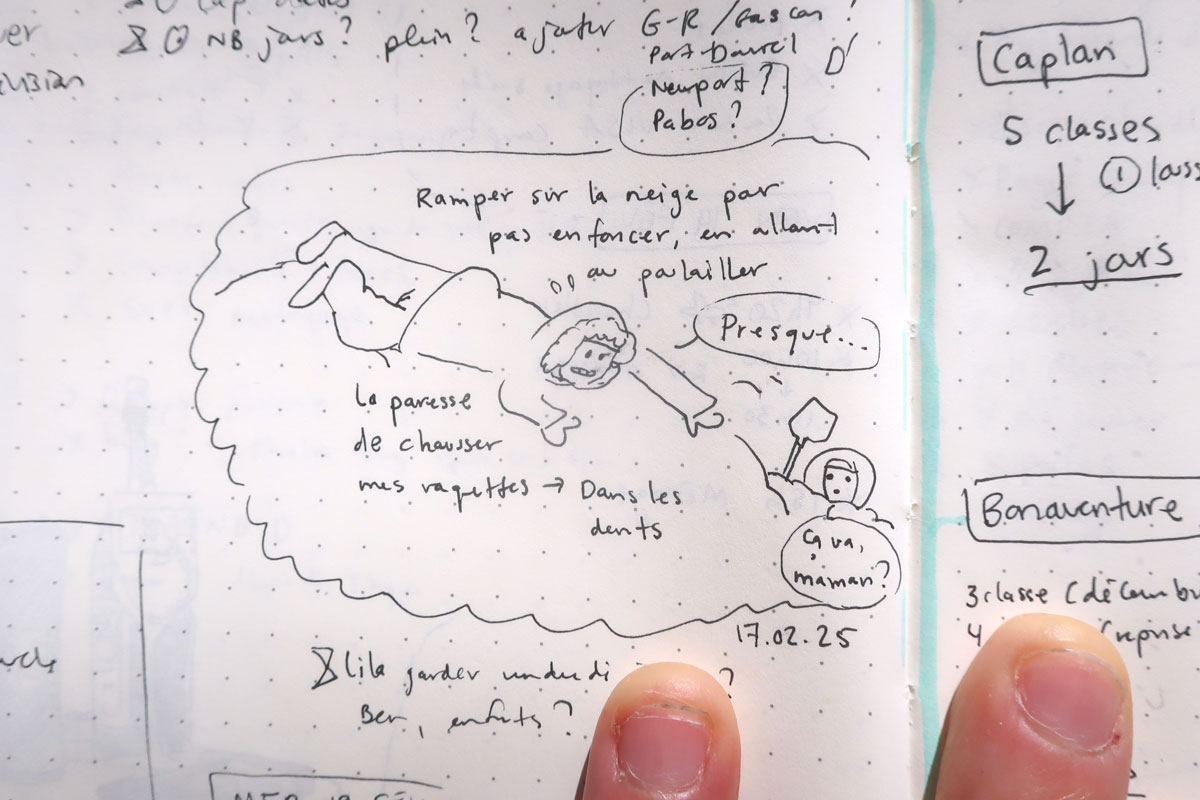 NB jars? plein? ajouter G-R / Gascon?
Port-Daniel
Newport?
Pabos?
Ramper sur la neige par
pas enfoncer, en allant
au poulailler
Presque...
La paresse
de chausser
mes raquettes → Dans les
dents
Ça va,
maman?
17.02.25
Lila garder
Ben, enfants?
Caplan
5 classes
↓ ①
2 jars
Bonaventure
3 classe
4